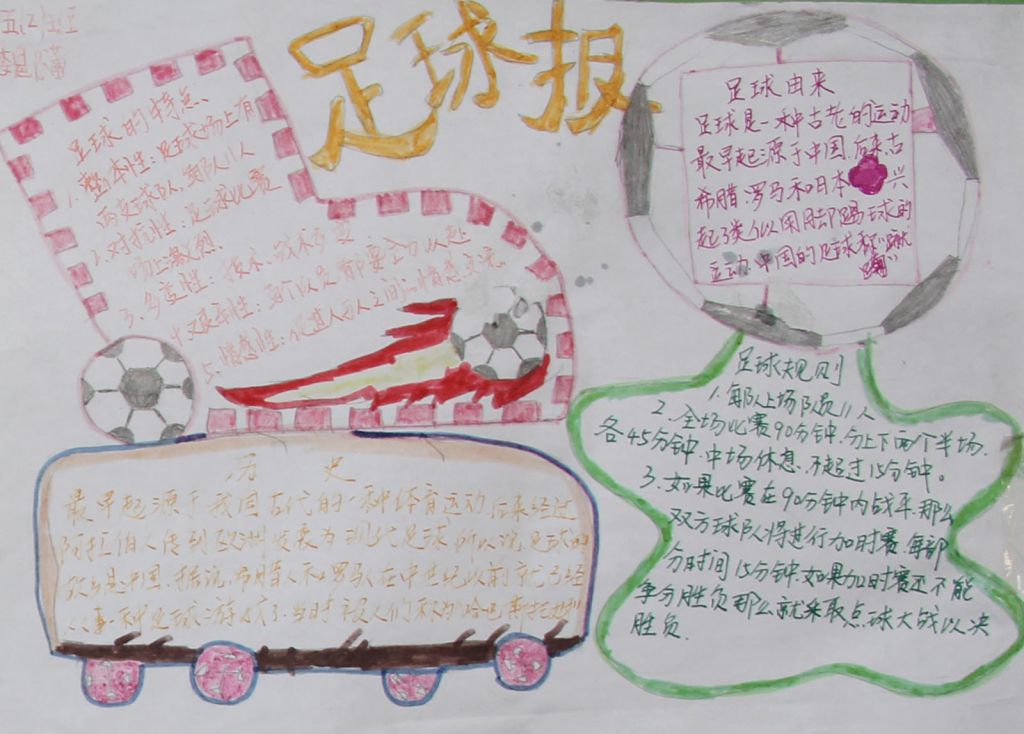 足球报
足球的特点、
1.整体性：足球场上有
两支球队，每队11人
2.对抗性：足球比赛
场上激烈.
3.多变性：技术、战术多变
4.艰辛性：
5.情感性：促进人与人之间的情感交流
足球由来
足球是一种古老的运动
最早起源于中国.后来古
希腊.罗马和日本兴
起了类似用脚踢球的
运动.中国的足球称
足球规则
1.每队上场队员11人
2.全场比赛90分钟.分上下两个半场.
各45分钟.中场休息.不超过15分钟。
3.如果比赛在90分钟内战平.那么
双方球队将进行加时赛.每部
分时间15分钟.如果加时赛还不能
争分胜负.那么就采取点球大战以决
胜负.
历史
最早起源于我国古代的一种体育运动.后来经过
阿拉伯人传到欧洲发展为现代足球.所以说.足球的
故乡是中国.据说.希腊人和罗马人在中世纪以前就已经
从事一种足球游戏了.当时